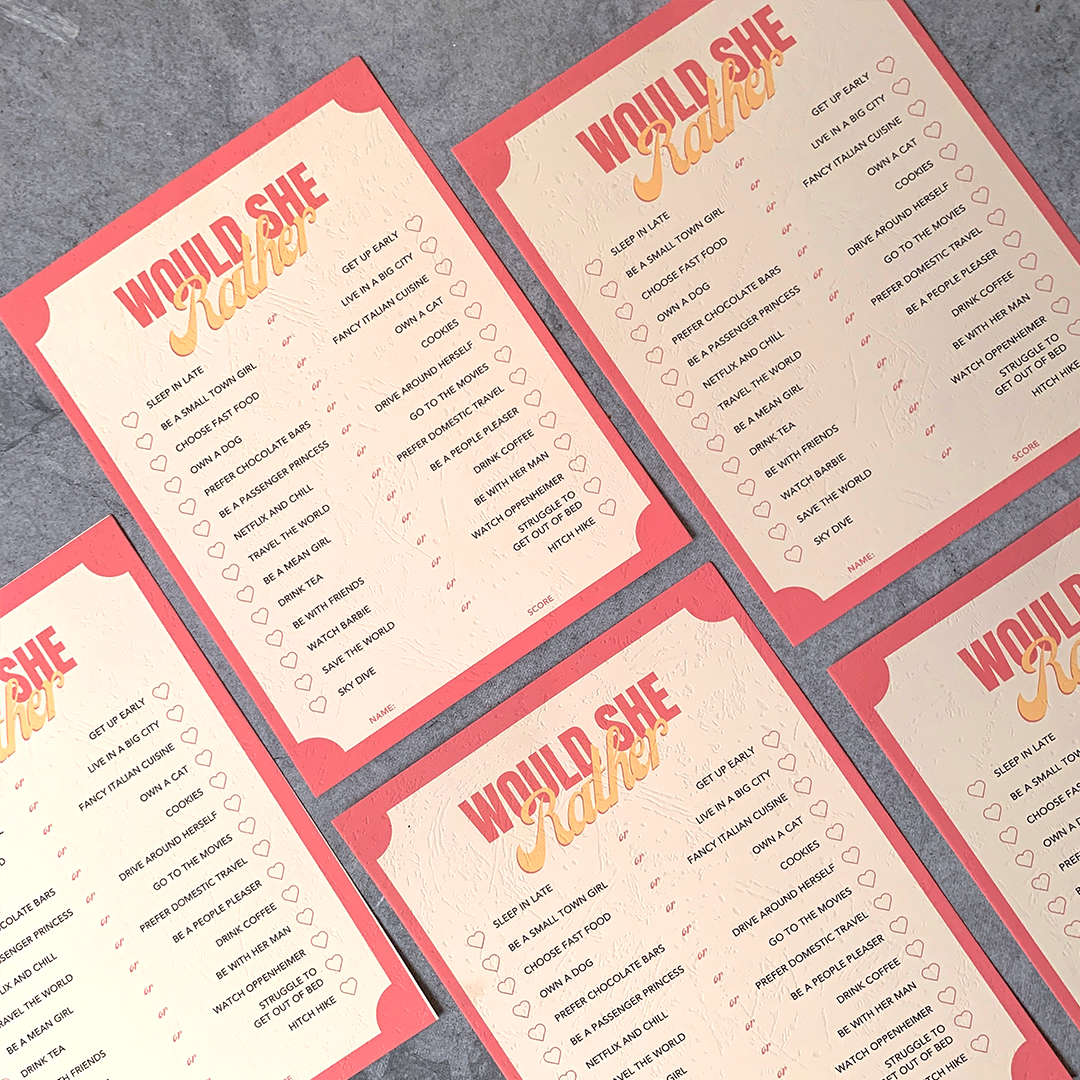 WOULD SHE
Rather
SLEEP IN LATE or GET UP EARLY
BE A SMALL TOWN GIRL or LIVE IN A BIG CITY
CHOOSE FAST FOOD or FANCY ITALIAN CUISINE
OWN A DOG or OWN A CAT
PREFER CHOCOLATE BARS or COOKIES
BE A PASSENGER PRINCESS or DRIVE AROUND HERSELF
NETFLIX AND CHILL or GO TO THE MOVIES
TRAVEL THE WORLD or PREFER DOMESTIC TRAVEL
BE A MEAN GIRL or BE A PEOPLE PLEASER
DRINK TEA or DRINK COFFEE
BE WITH FRIENDS or BE WITH HER MAN
WATCH BARBIE or WATCH OPPENHEIMER
SAVE THE WORLD or STRUGGLE TO
GET OUT OF BED
SKY DIVE or HITCH HIKE
NAME: SCORE
WOULD SHE
Rather
SLEEP IN LATE or GET UP EARLY
BE A SMALL TOWN GIRL or LIVE IN A BIG CITY
CHOOSE FAST FOOD or FANCY ITALIAN CUISINE
OWN A DOG or OWN A CAT
PREFER CHOCOLATE BARS or COOKIES
BE A PASSENGER PRINCESS or DRIVE AROUND HERSELF
NETFLIX AND CHILL or GO TO THE MOVIES
TRAVEL THE WORLD or PREFER DOMESTIC TRAVEL
BE A MEAN GIRL or BE A PEOPLE PLEASER
DRINK TEA or DRINK COFFEE
BE WITH FRIENDS or BE WITH HER MAN
WATCH BARBIE or WATCH OPPENHEIMER
SAVE THE WORLD or STRUGGLE TO
GET OUT OF BED
SKY DIVE or HITCH HIKE
NAME: SCORE
SHE
ther
or GET UP EARLY
or LIVE IN A BIG CITY
or FANCY ITALIAN CUISINE
or OWN A CAT
COLATE BARS or COOKIES
SENGER PRINCESS or DRIVE AROUND HERSELF
LIX AND CHILL or GO TO THE MOVIES
RAVEL THE WORLD or PREFER DOMESTIC TRAVEL
BE A MEAN GIRL or BE A PEOPLE PLEASER
DRINK TEA or DRINK COFFEE
FRIENDS or BE WITH HER MAN
or WATCH OPPENHEIMER
or STRUGGLE TO
GET OUT OF BED
HITCH HIKE
WOULD SHE
Rather
SLEEP IN LATE or GET UP EARLY
BE A SMALL TOWN GIRL or LIVE IN A BIG CITY
CHOOSE FAST FOOD or FANCY ITALIAN CUISINE
OWN A DOG or OWN A CAT
PREFER CHOCOLATE BARS or COOKIES
BE A PASSENGER PRINCESS or DRIVE AROUND HERSELF
NETFLIX AND CHILL or GO TO THE MOVIES
TRAVEL THE WORLD or PREFER DOMESTIC TRAVEL
or BE A PEOPLE PLEASER
or DRINK COFFEE
or BE WITH HER MAN
WATCH OPPENHEIMER
STRUGGLE TO
GET OUT OF BED
HITCH HIKE
WOULD
Ra
SLEEP IN LATE
BE A SMALL TOW
CHOOSE FAS
OWN A D
PREF